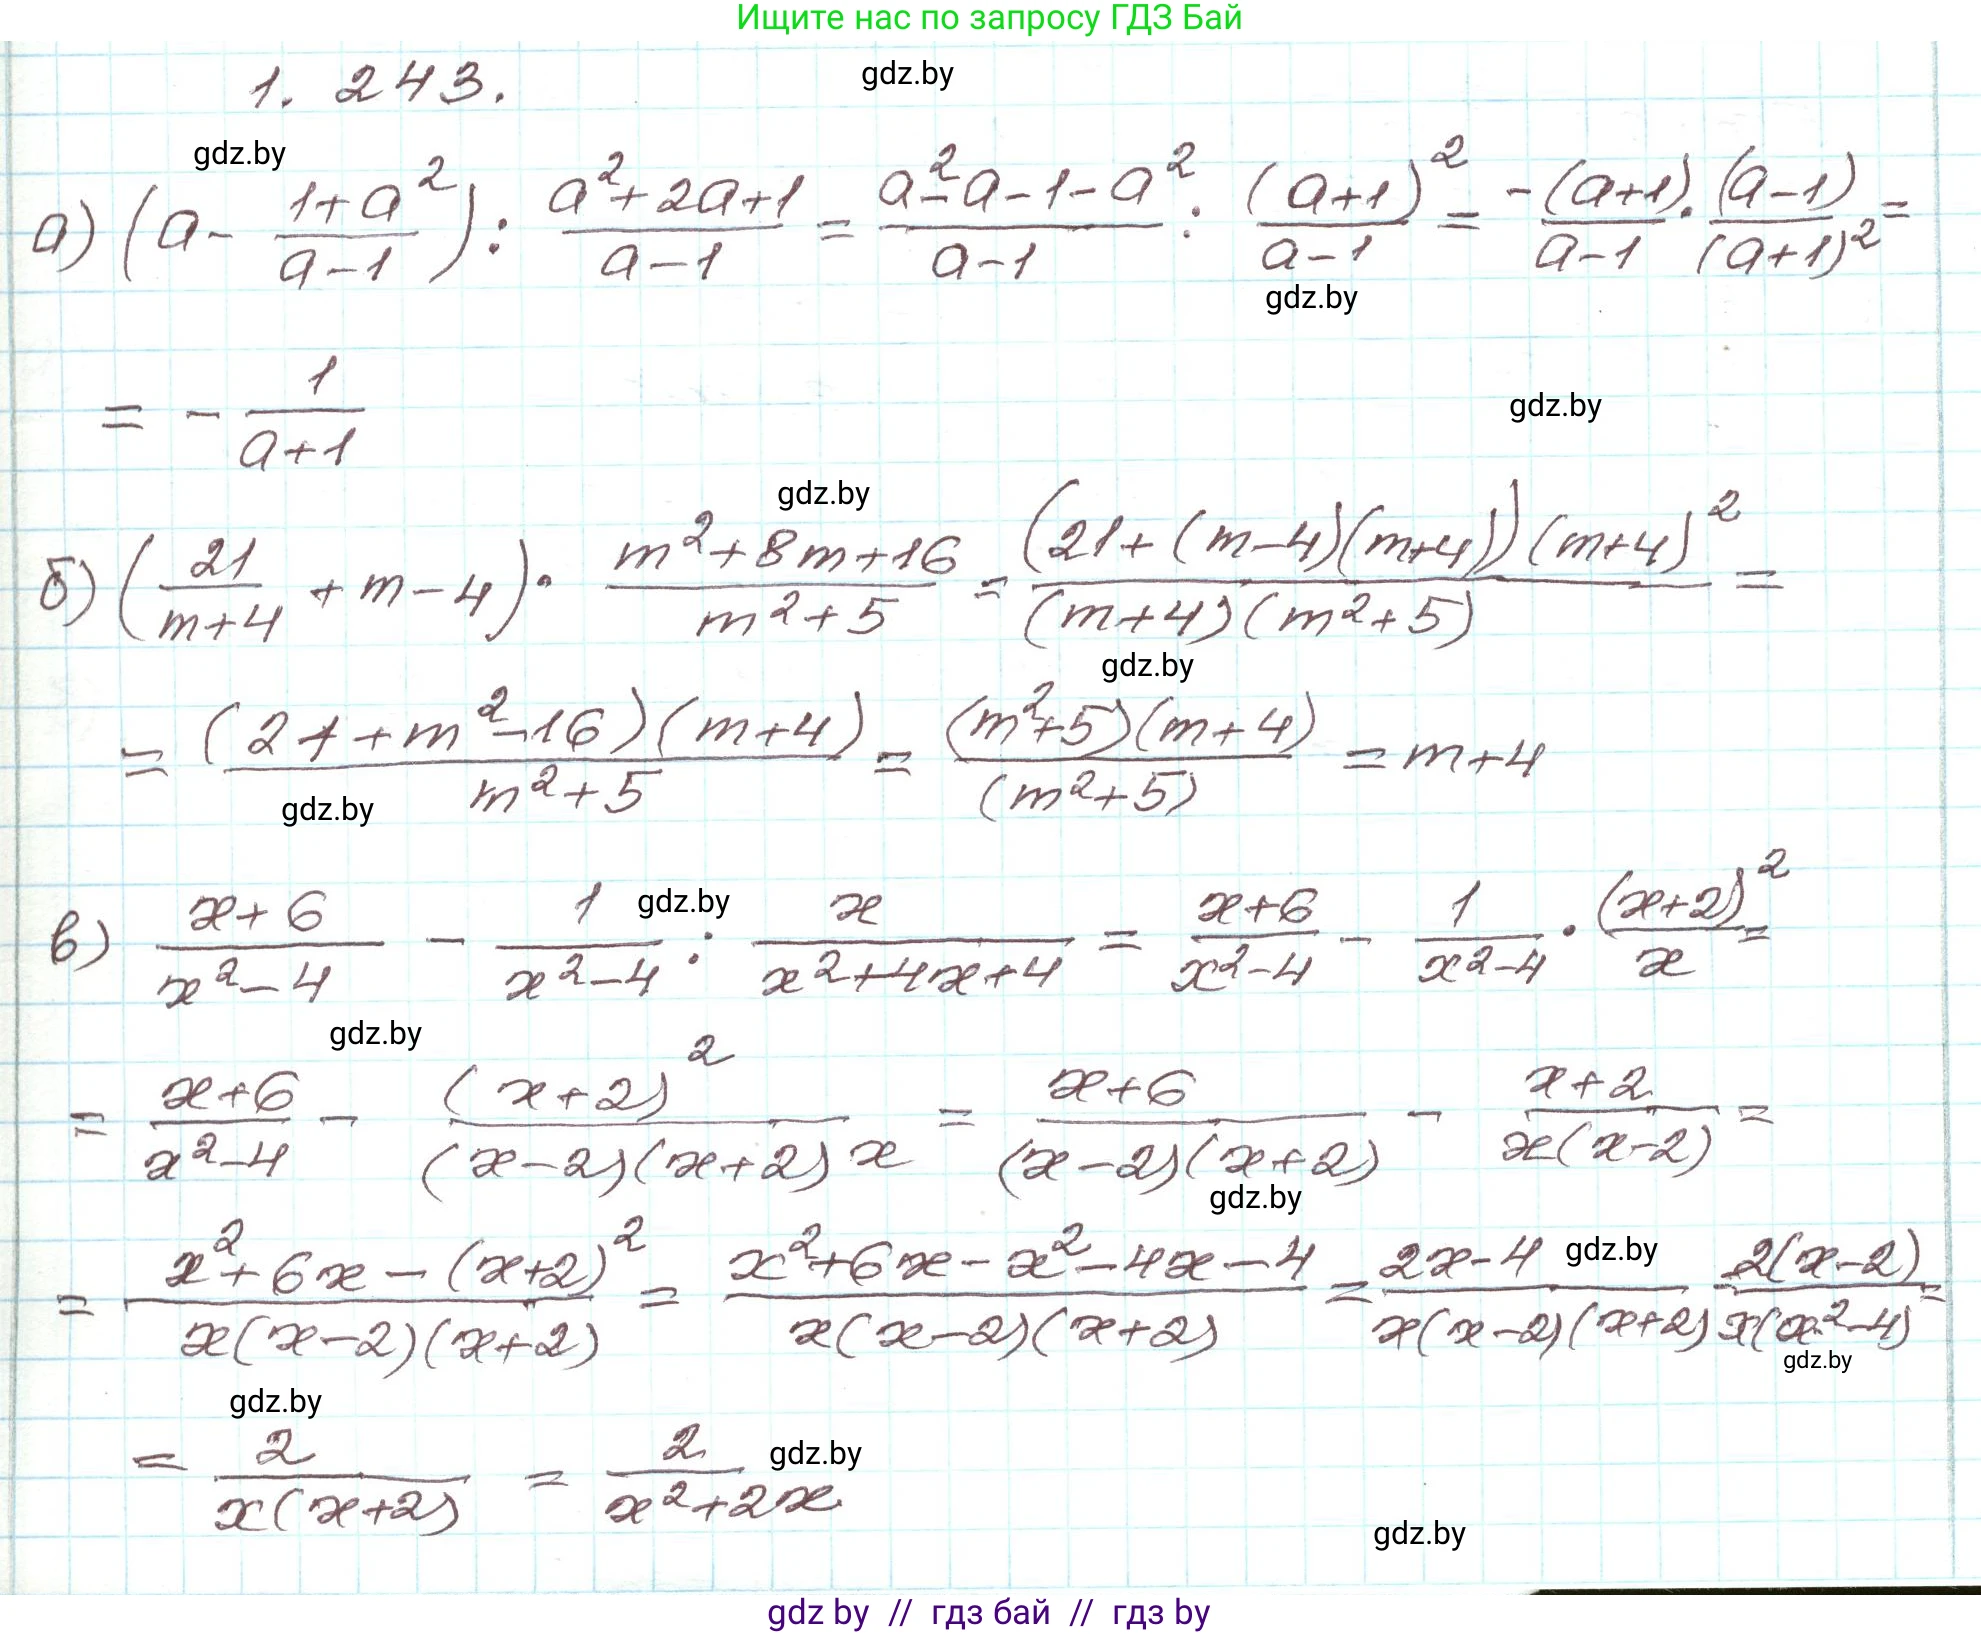 Ищите нас по запросу ГДЗ Бай
1. 243.
gdz.by
gdz.by
а) (a - (1+a²)/(a-1)) : (a²+2a+1)/(a-1) = (a²-a-1-a²)/(a-1) : (a+1)²/(a-1) = -(a+1)/(a-1) · (a-1)/(a+1)² =
gdz.by
= - 1/(a+1)
gdz.by
gdz.by
б) (21/(m+4) + m-4) · (m²+8m+16)/(m²+5) = (21+(m-4)(m+4))(m+4)²/((m+4)(m²+5)) =
gdz.by
= (21+m²-16)(m+4)/(m²+5) = (m²+5)(m+4)/(m²+5) = m+4
gdz.by
в) (x+6)/(x²-4) - 1/(x²-4) : x/(x²+4x+4) = (x+6)/(x²-4) - 1/(x²-4) · (x+2)²/x =
gdz.by
gdz.by
= (x+6)/(x²-4) - (x+2)²/((x-2)(x+2)x) = (x+6)/((x-2)(x+2)) - (x+2)/(x(x-2)) =
gdz.by
= (x²+6x-(x+2)²)/(x(x-2)(x+2)) = (x²+6x-x²-4x-4)/(x(x-2)(x+2)) = (2x-4)/(x(x-2)(x+2)) 2(x-2)/(x(x²-4)) =
gdz.by
gdz.by
gdz.by
= 2/(x(x+2)) = 2/(x²+2x)
gdz.by
gdz.by
gdz by // гдз бай // гдз by